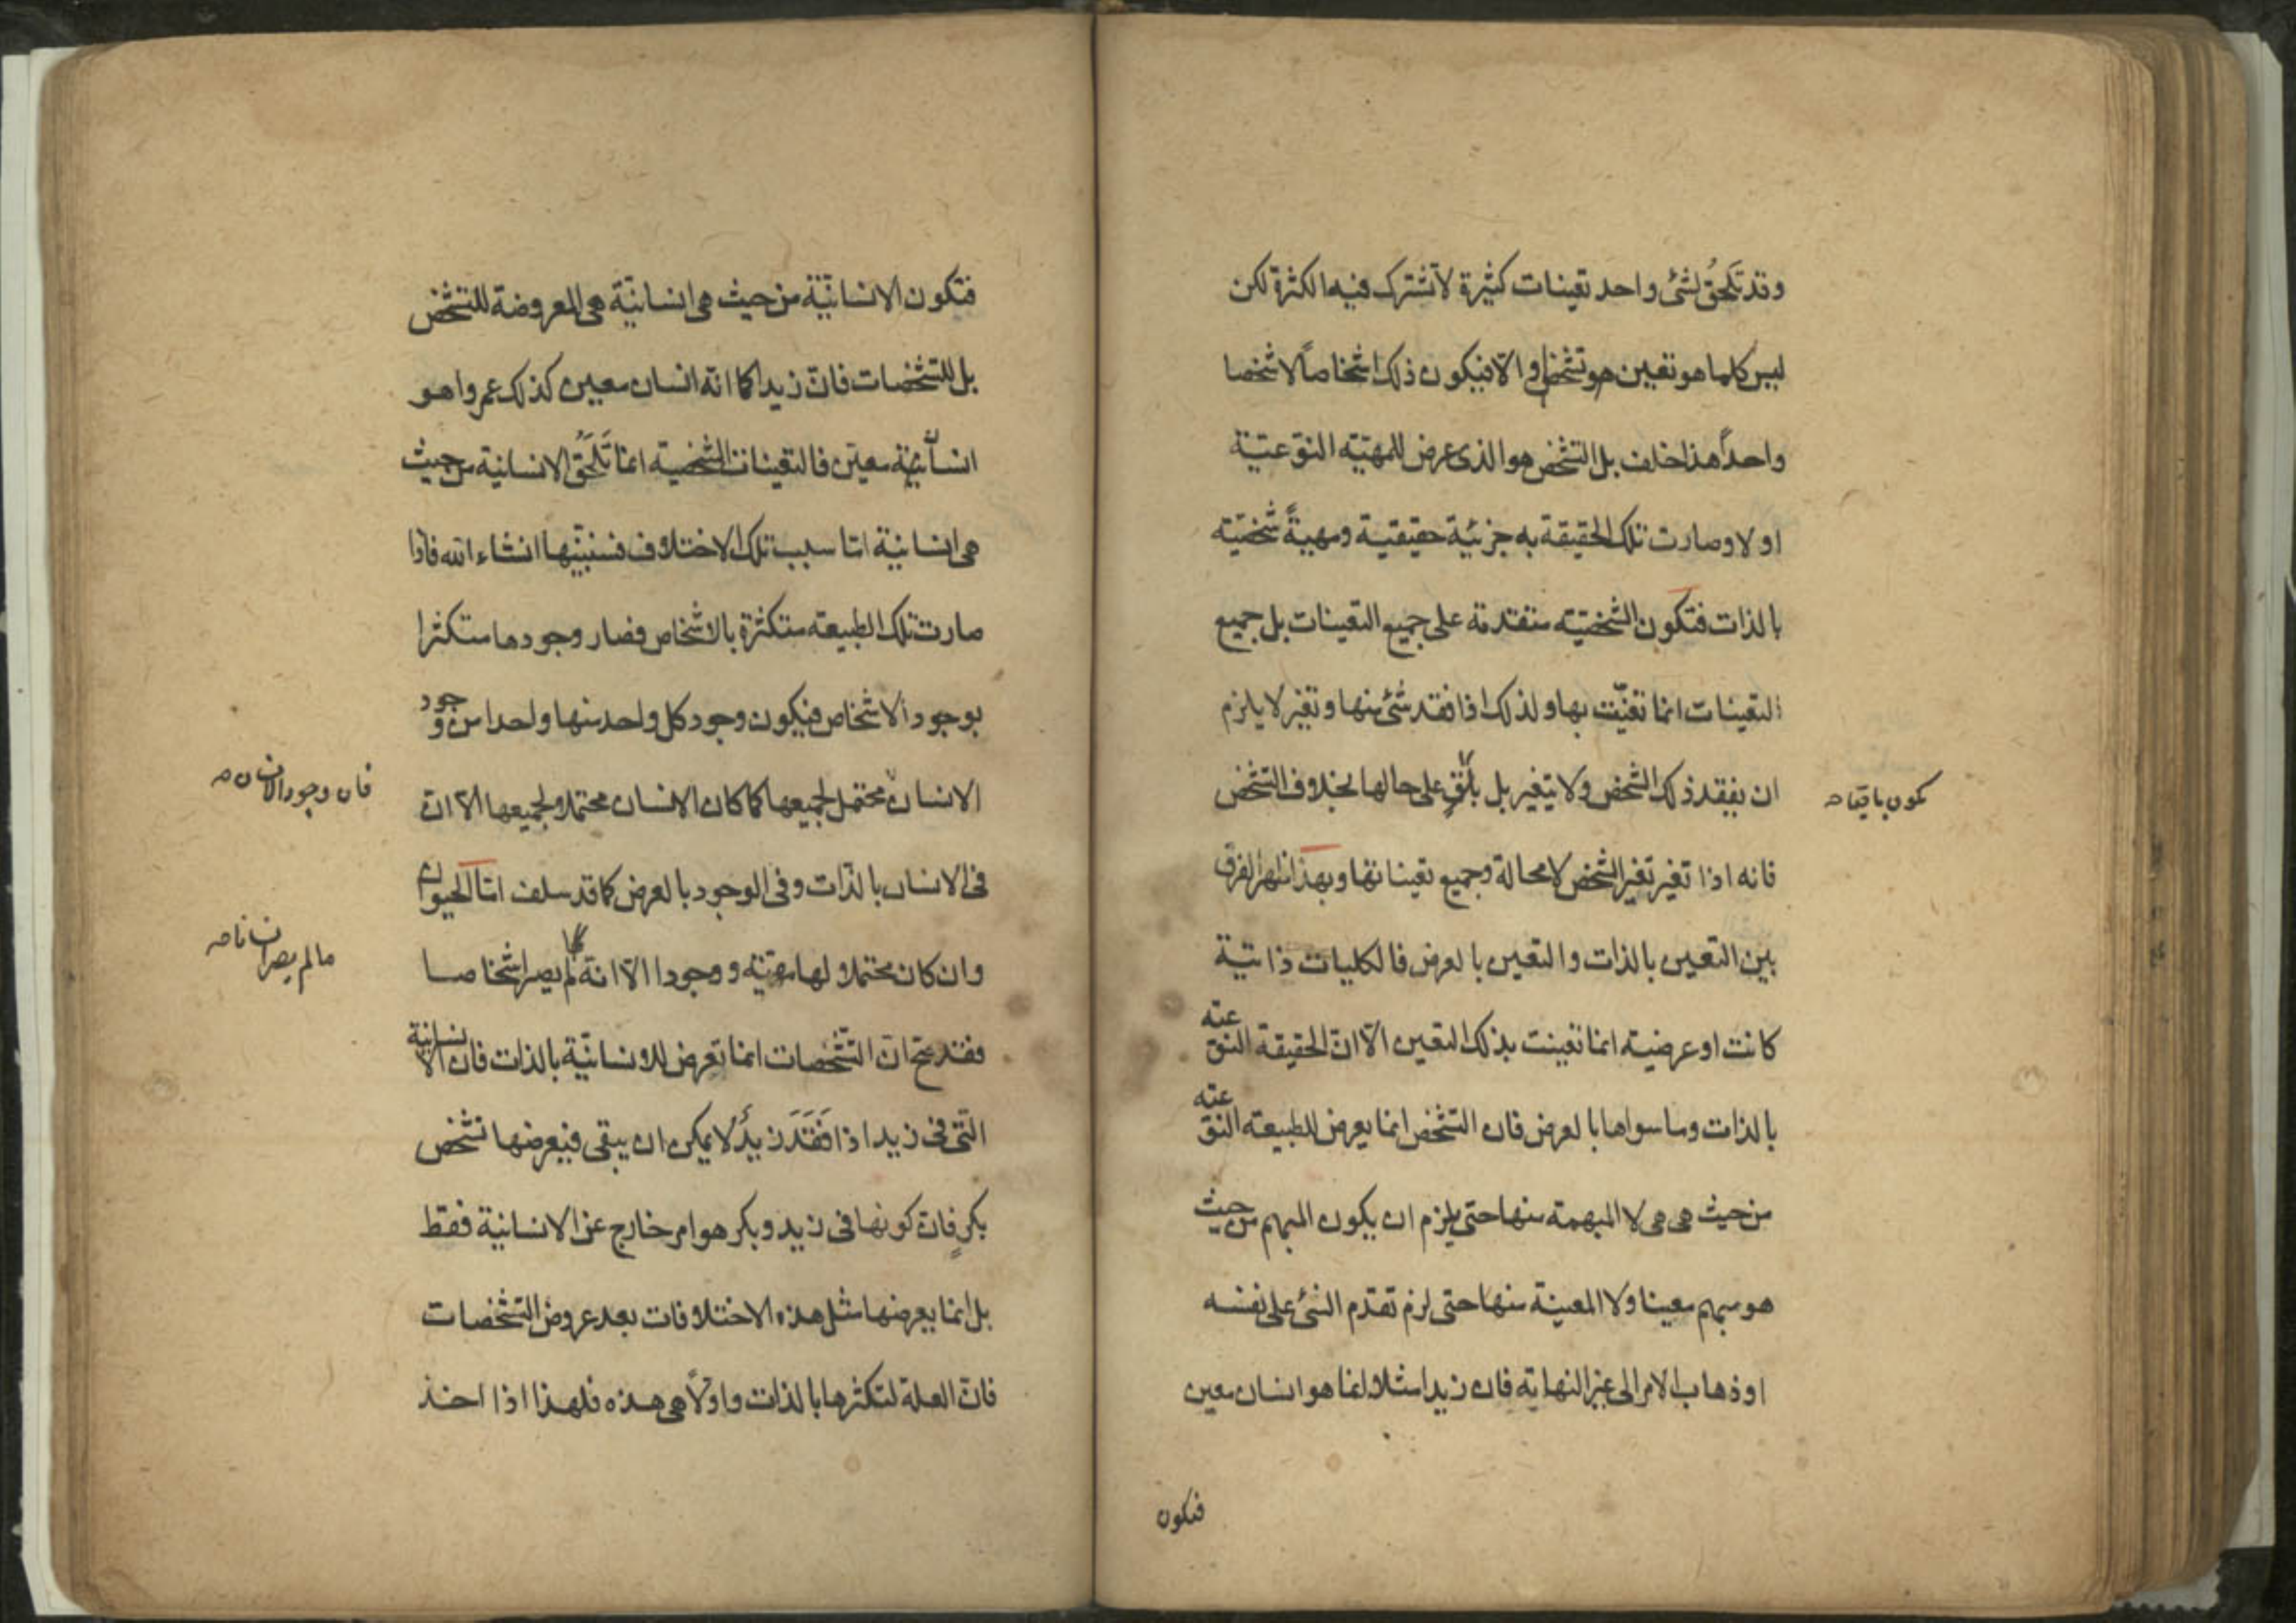 وقد تَلحقُ لشئ واحد تعينات كثيرة لا تشترك فيه الكثرة لكن
ليس كلما هو تعين هو تشخص والا فيكون ذلك اشخاصاً لا شخصا
واحداً هذا خلف بل التشخص هو الذى عرض للمهيّه النوعيّة
اولا وصارت تلك الحقيقة به جزئيّة حقيقية ومهيةً شخصيّه
بالذات فتكون الشخصيّه متقدمة على جميع التعينات بل جميع
التعينات انما تعيّنت بها ولذلك اذا فقد شئ منها وتغير لا يلزم
ان يفقد ذلك الشخص ولا يتغير بل بقى على حالها بخلاف التشخص
يكون باقيا صه
فانه اذا تغير تغير الشخص لا محالة وجميع تعيناتها وبهذا ظهر الفرق
بين التعين بالذات والتعين بالعرض فالكليات ذاتيّة
كانت او عرضية انما تعينت بذلك التعين الاّ انّ الحقيقة النوعيّه
بالذات وما سواها بالعرض فان التشخص انما يعرض للطبيعة النوعيّه
من حيث هى هى لا المبهمة منها حتى يلزم ان يكون المبهم من حيث
هو مبهم معينا ولا المعينة منها حتى لزم تقدّم الشئ على نفسه
او ذهاب الامر الى غير النهاية فان زيدا مثلا انما هو انسان معين
فتكون
فتكون الانسانيّة من حيث هى انسانيّة هى المعروضة للتشخص
بل للتشخصات فانّ زيدا كما انّه انسان معين كذلك عمروا هو
انسانية معيّن فالتعينات الشخصية انما تَلحَقُ الانسانية من حيث
هى انسانية امّا سبب تلك الاختلاف فسنبيّنها انشاء الله فاذا
صارت تلك الطبيعة متكثرة بالاشخاص فصار وجودها متكثرا
بوجود الاشخاص فيكون وجود كل واحد منها واحدا من وجود
الانسان محتمل لجميعها كما كان الانسان محتملا لجميعها الاّ انّ
فان وجود الانسان صه
فى الانسان بالذّات وفى الوجود بالعرض كما قد سلف امّا الحيوان
وان كان محتملا لها مهيّة ووجودا الاّ انه لم يصر اشخاصا
ما لم يصر انسانا صه
فقد صحّ انّ التشخصات انما تعرض للانسانيّة بالذات فان الانسانية
التّى فى زيد اذا فَقَدَ زيدٌ لا يمكن ان يبقى فيعرضها تشخص
بكرٍ فانّ كونها فى زيد وبكر هو امر خارج عن الانسانية فقط
بل انما يعرضها مثل هذه الاختلافات بعد عروض التشخصات
فانّ العلة لتكثرها بالذات واولاً هى هذه فلهذا اذا اخذ